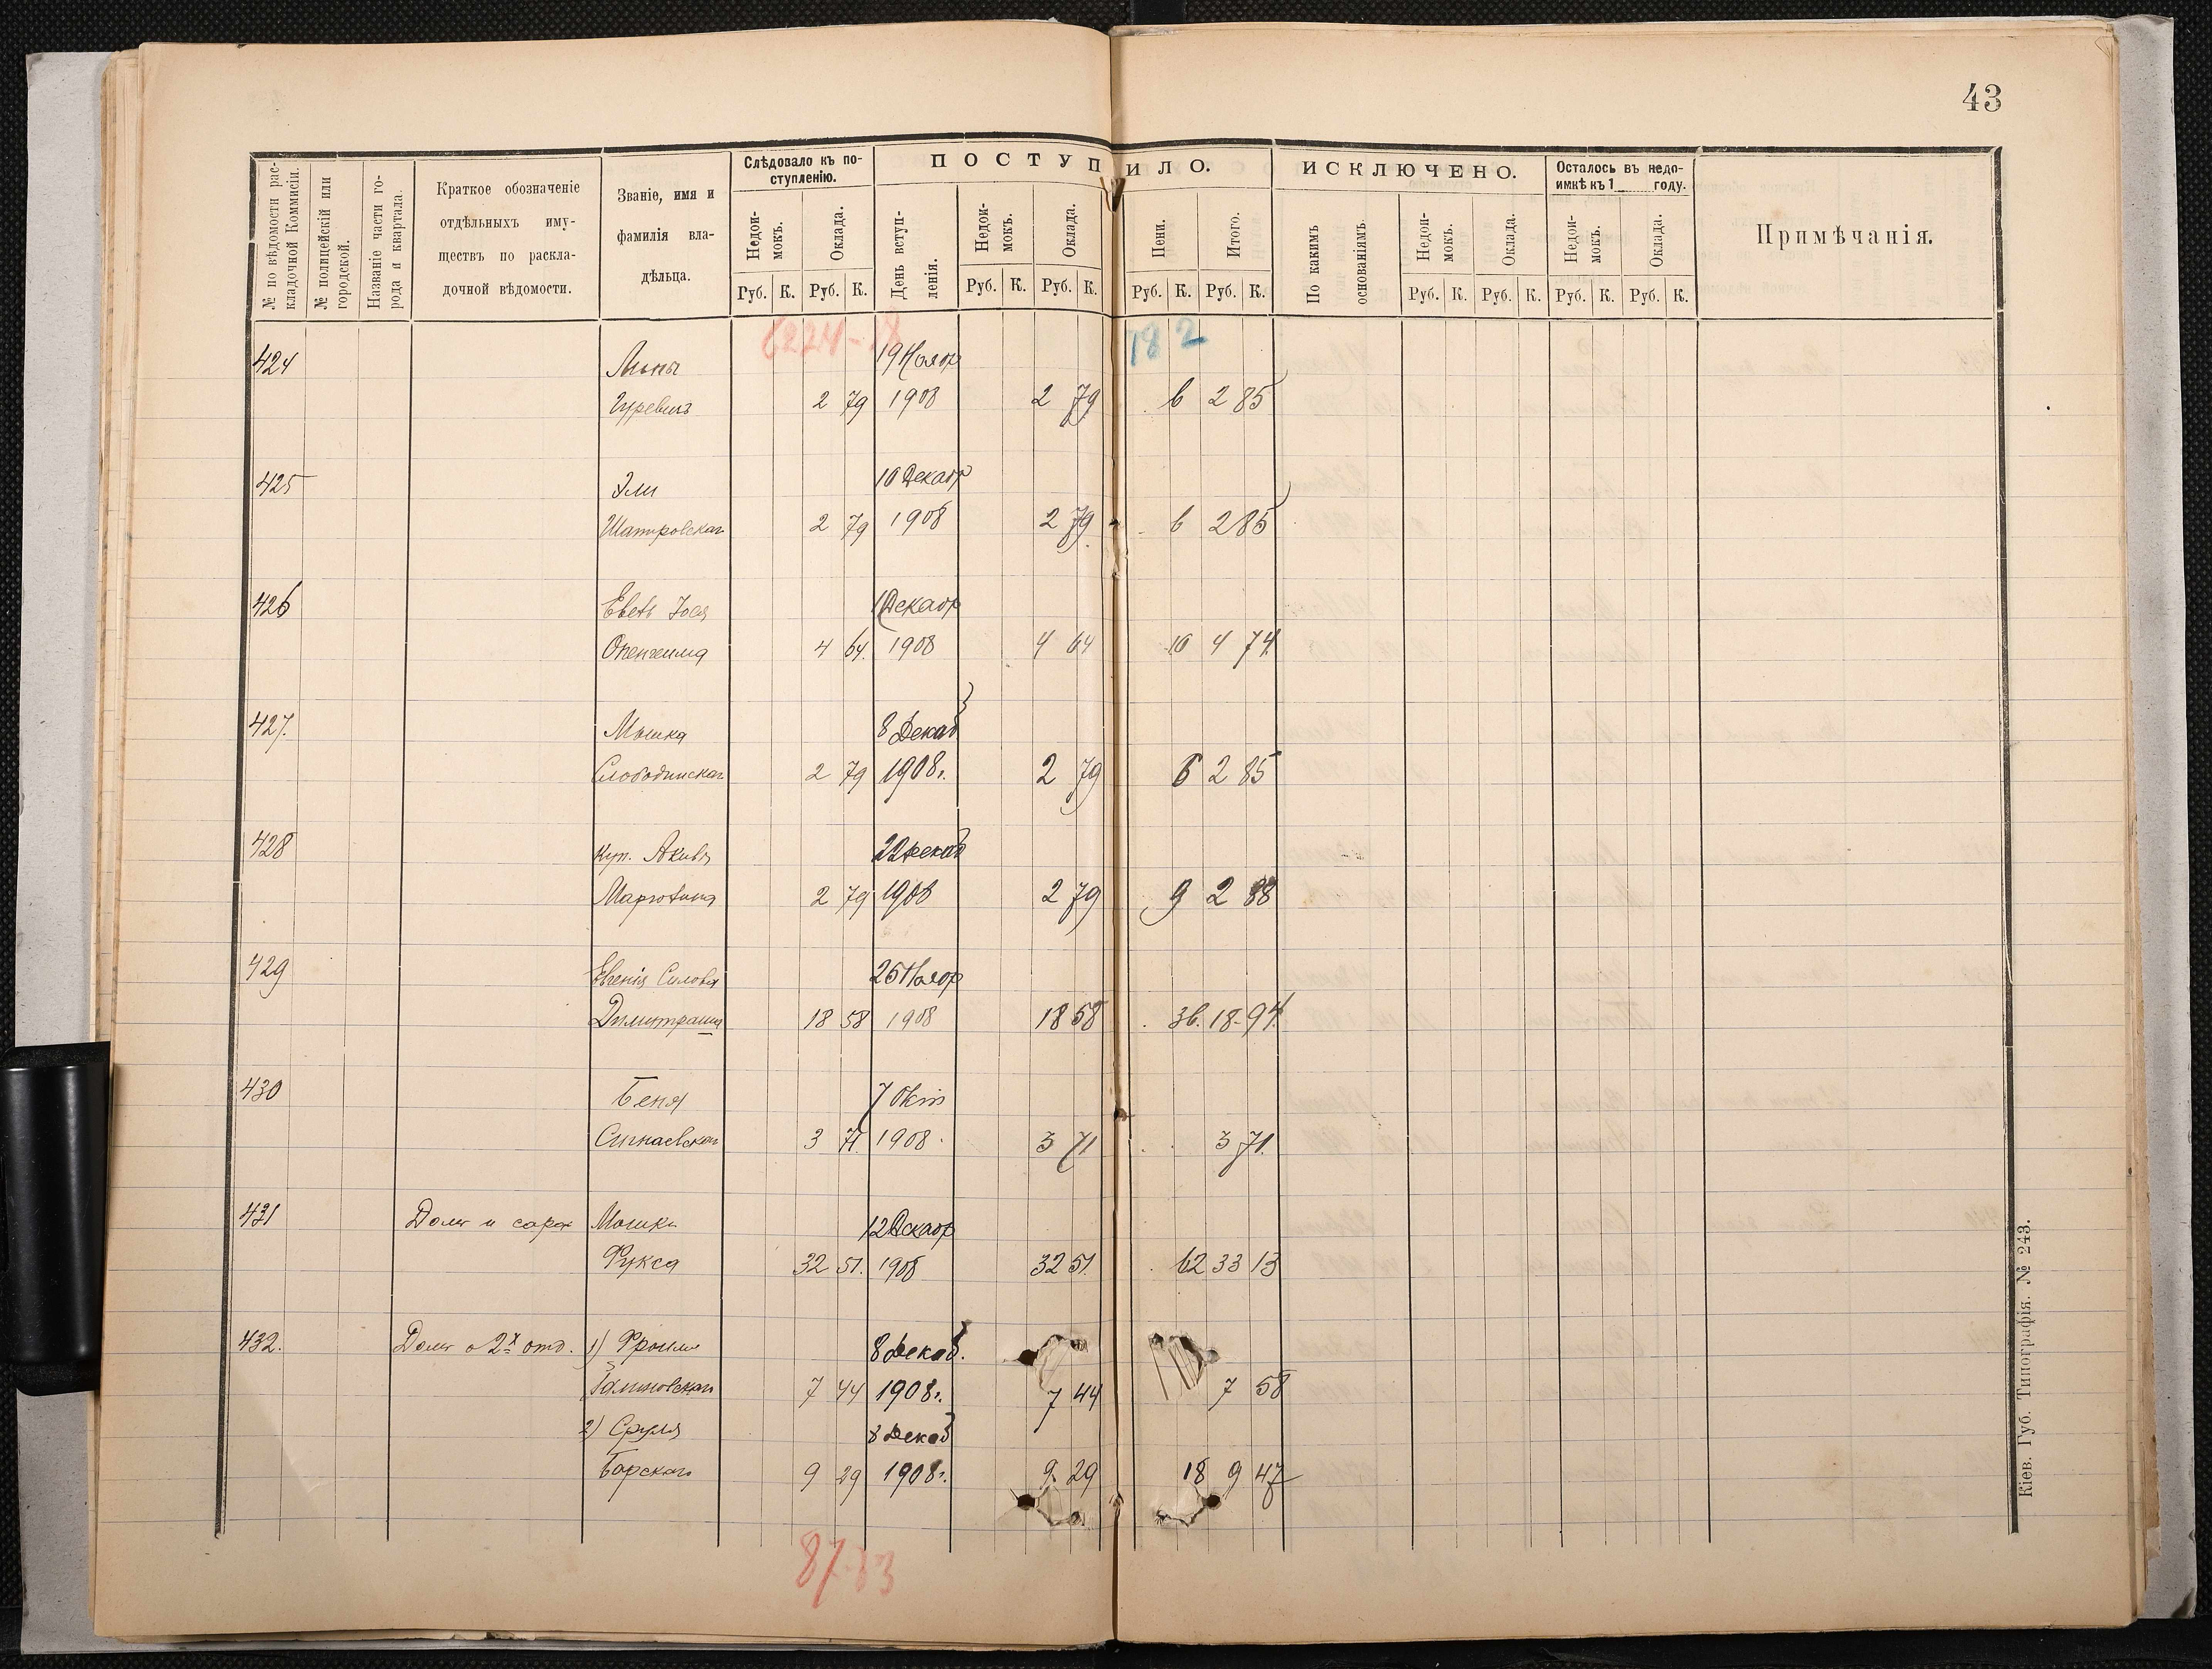 43
№ по вѣдомости рас-
кладочной Коммисіи.
№ полицейскій или
городской.
Названіе части го-
рода и квартала.
Краткое обозначеніе
отдѣльныхъ иму-
ществъ по раскла-
дочной вѣдомости.
Званіе, имя и
фамилія вла-
дѣльца.
Слѣдовало къ по-
ступленію.
Недои-
мокъ.
Оклада.
Руб. К. Руб. К.
ПОСТУПИЛО.
День вступ-
ленія.
Недои-
мокъ.
Оклада.
Пени.
Итого.
Руб. К. Руб. К. Руб. К. Руб. К.
ИСКЛЮЧЕНО.
По какимъ
основаніямъ.
Недои-
мокъ.
Оклада.
Руб. К. Руб. К.
Осталось въ недо-
имкѣ къ 1 году.
Недои-
мокъ.
Оклада.
Руб. К. Руб. К.
Примѣчанія.
182
424 19 Ноябр
2 79 1908 2 79 6 2 85
425 Эли 10 Декабр
2 79 1908 2 79 6 2 85
426 1 Декабр
Опенгейма 4 64. 1908 4 64 10 4 74
427. Мошка 8 Декаб
2 79 1908г. 2 79 6 2 85
428 куп. Акива 22 декаб
2 79 1908 2 79 9 2 88
429 25 Ноябр
18 58 1908 18 58 36. 18-94.
430 Беня 7 Окт
3 71. 1908. 3 71 3 71.
431 Домъ и сарай Мошки 12 Декабр
Фукса 32 51. 1908 32 51. 62 33 13
432. Домъ о 2х отд. 1) Фроима 8 Декаб.
7 44 1908г. 7 44 7 58
2) Сруля 8 Декаб
Борскаго 9 29 1908г. 9. 29 18 9 47
Кіев. Губ. Типографія. № 243.